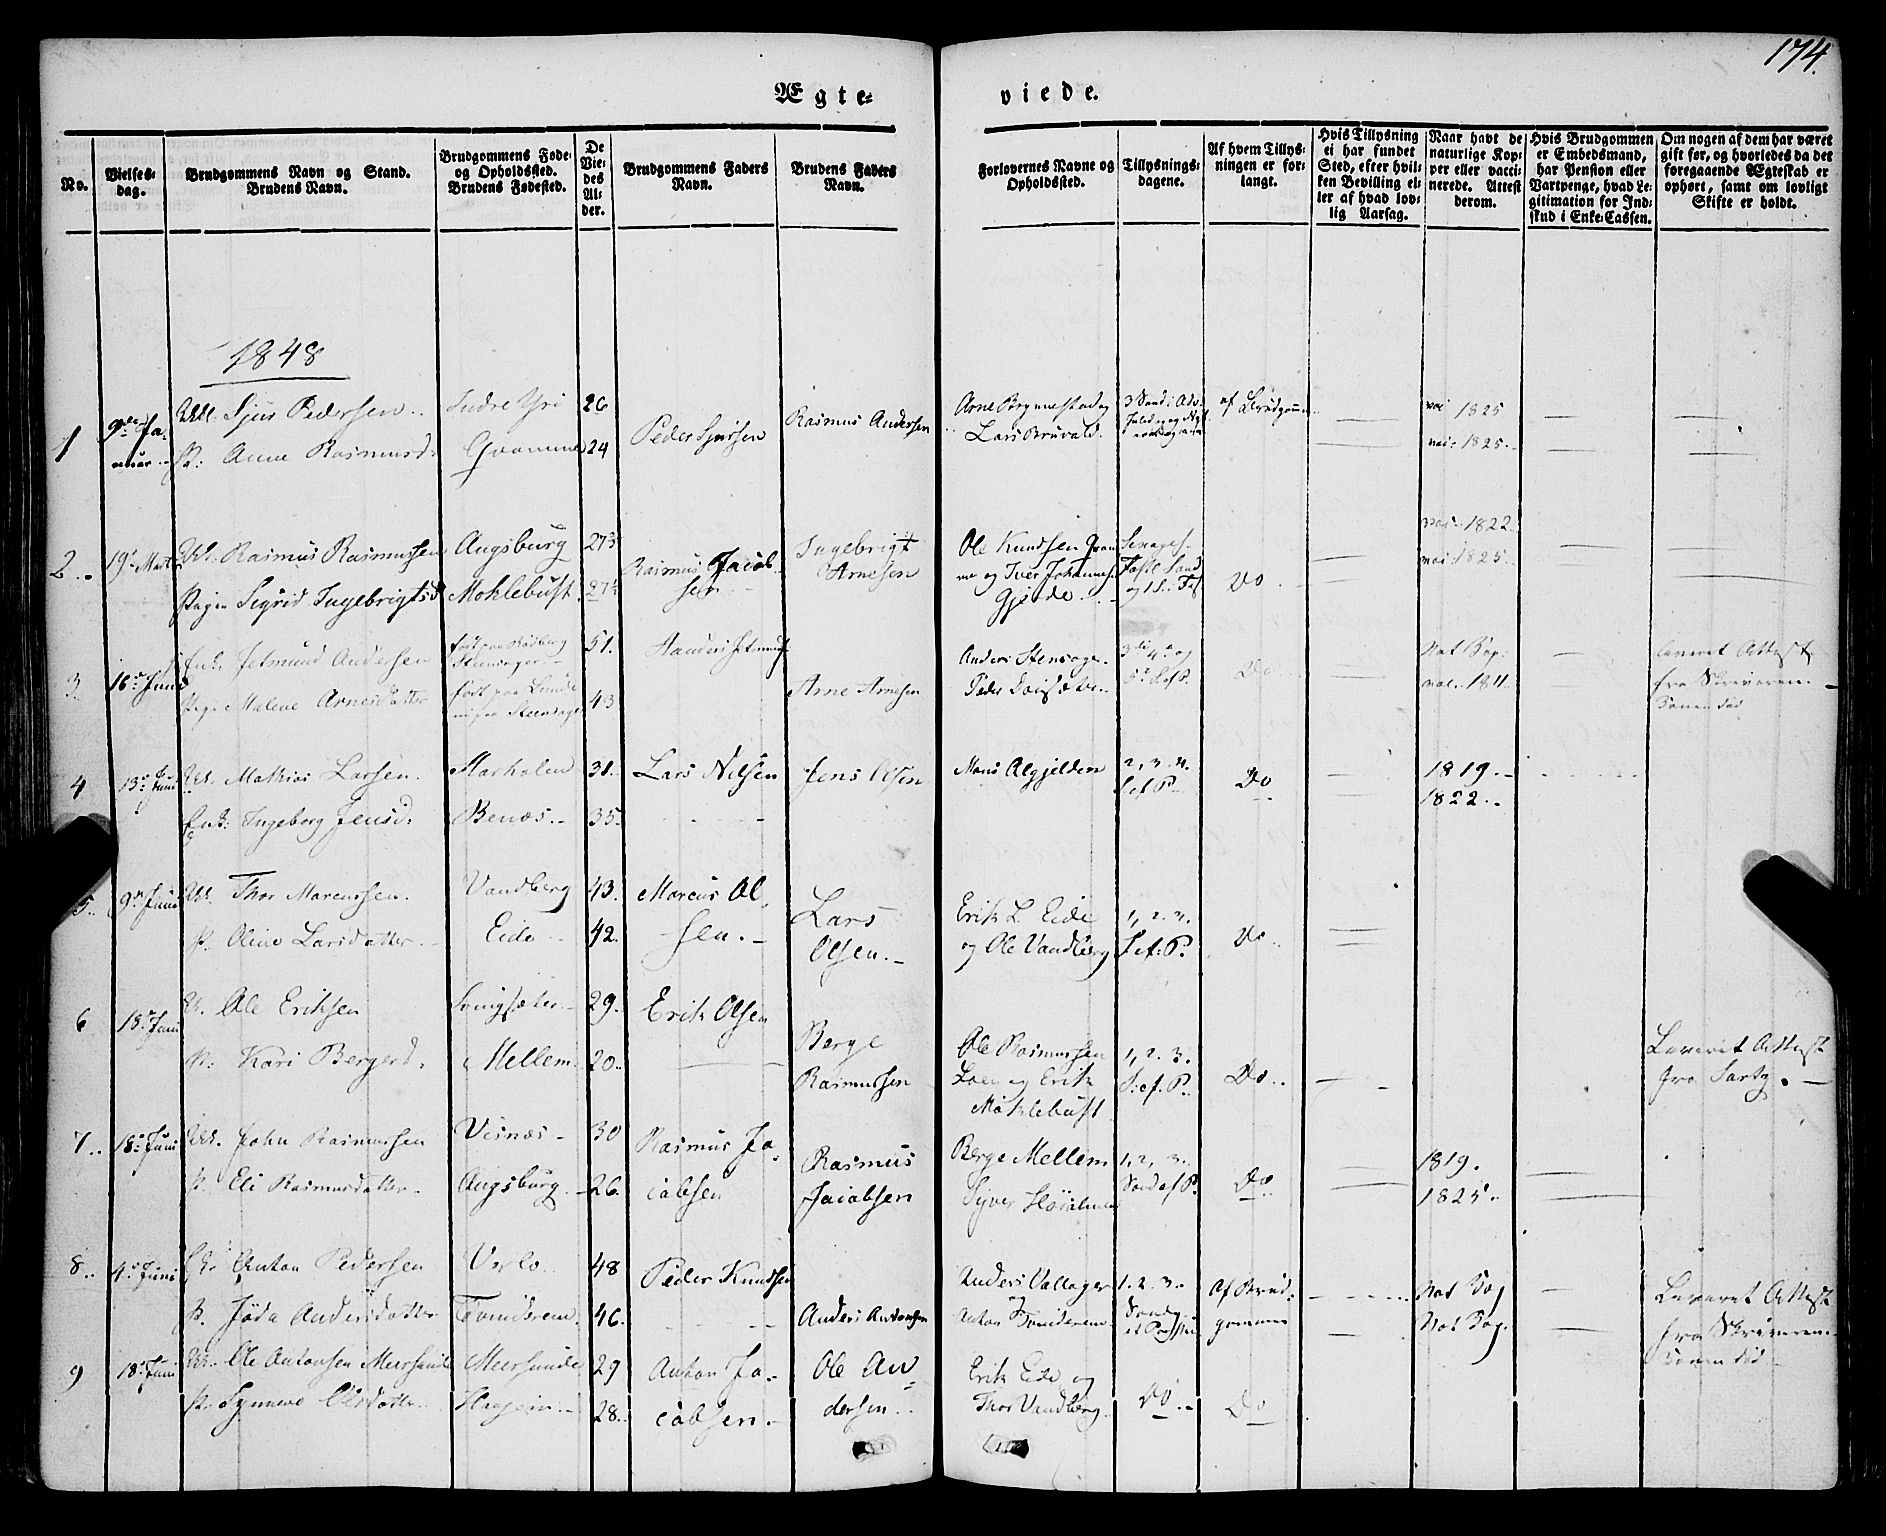 174.
Ægte=
viede.
No.
Vielses=
dag.
Brudgommens Navn og Stand.
Brudens Navn.
Brudgommens Føde=
og Opholdssted.
Brudens Fødested.
De
Vie=
des
Al=
der.
Brudgommens Faders
Navn.
Brudens Faders
Navn.
Forlovernes Navne og
Opholdssted.
Tillysnings=
dagene.
Af hvem Tillys=
ningen er for=
langt.
Hvis Tillysning
ei har fundet
Sted, efter hvil=
ken Bevilling el=
ler af hvad lov=
lig Aarsag.
Naar havt de
naturlige Kop=
per eller vacci=
nerede. Attest
derom.
Hvis Brudgommen
er Embedsmand,
har Pension eller
Vartpenge, hvad Le=
gitimation for Ind=
skud i Enke=Cassen.
Om nogen af dem har været
gift før, og hvorledes da det
foregaaende Ægteskab er
ophørt, samt om lovligt
Skifte er holdt.
1848
1
9de Ja=
nuar
Sjur Pedersen
P: Anne Rasmusd.
Indre Yri
Qvamme
26
24
Peder Sjursen
Rasmus Andersen
Arne Brynnestad og
Lars Bruvald.
af Brudgommen
vac 1825
vac: 1825
2
19. Marts
Rasmus Rasmussen
Pigen Sigrid Ingebrigtsd
Augsburg
Moklebust
27
27
Rasmus Jacob
sen
Ingebrigt
Arnesen
Ole Knudsen Qvam
me og Iver Johannes.
Gjerde
Do
vac. 1822
vac 1825
3
16 Juni
Enk. Jetmund Andersen
Pige Malene Arnesdatter
født paa Rødberg
født paa Lunde
51.
43
Anders Jetmunds
Arne Arnesen
Anders Stensager
Peder
3die 4de og
5te S. ef P.
Do
Nat Kop:
vac. 1811
leveret Attest
fra Skriveren.
Konen død
4
13de Juni
Mathias Larsen.
Enk: Ingeborg Jensd:
Marholen
Benæs
31.
35.
Lars Nilsen
Jens Olsen
Mons Algjelden
2, 3. 4.
S ef P.
Do
1819.
1822.
5.
9de Juni
Thor Marcussen.
P. Oline Larsdatter.
Vandberg
Eide
43.
42.
Marcus Ol
sen.
Lars
Olsen.
Erik L. Eide
og Ole Vandberg
1, 2. 3.
S. ef: P.
Do
6
18 Juni
Ole Eriksen
P: Kari Bergerd.
Mellem
29.
20.
Erik Olsen
Berge
Rasmussen
Ole Rasmussen
Loen og Erik
Moklebust
1, 2. 3.
S: ef. P.
Do
Leveret Attest
fra
7
18de Juni
John Rasmussen
P. Eli Rasmusdatter
Visnæs
Augsburg
30
26.
Rasmus Ja
cobsen
Rasmus
Jacobsen
Berge Mellem
Syver
1, 2, 3.
Sønd ef P.
Do
1819.
1825.
8
4de Juni
Anton Pedersen
P. Jøda Andersdatter
Verlo
Tvinderem
48
46.
Peder Knudsen
Anders Antonsen
Anders Vallager
og
Anton Tvinderem
1. 2. 3.
Af Brud=
gommen
Nat Kop
Nat Kop.
Leveret Attest
fra Skriveren.
Konen død
9
18de Juni
Ole Antonsen Meersunde
P. Synneve Olsdatter
Meersunde
29
28.
Anton Ja
cobsen
Ole An=
dersen
Erik Eide og
Thor Vandberg.
Do
Do